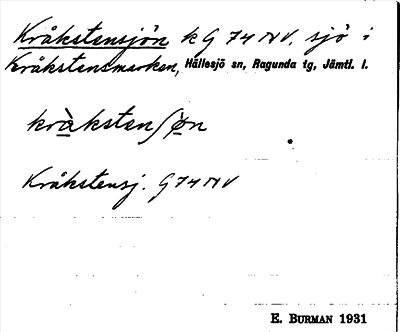 Kråkstensjön k G 74 NV, sjö i
Kråkstensmarken, Hällesjö sn, Ragunda tg, Jämtl. l.
kràkstenʃø̀n
Kråkstensj. G 74 NV
E. BURMAN 1931